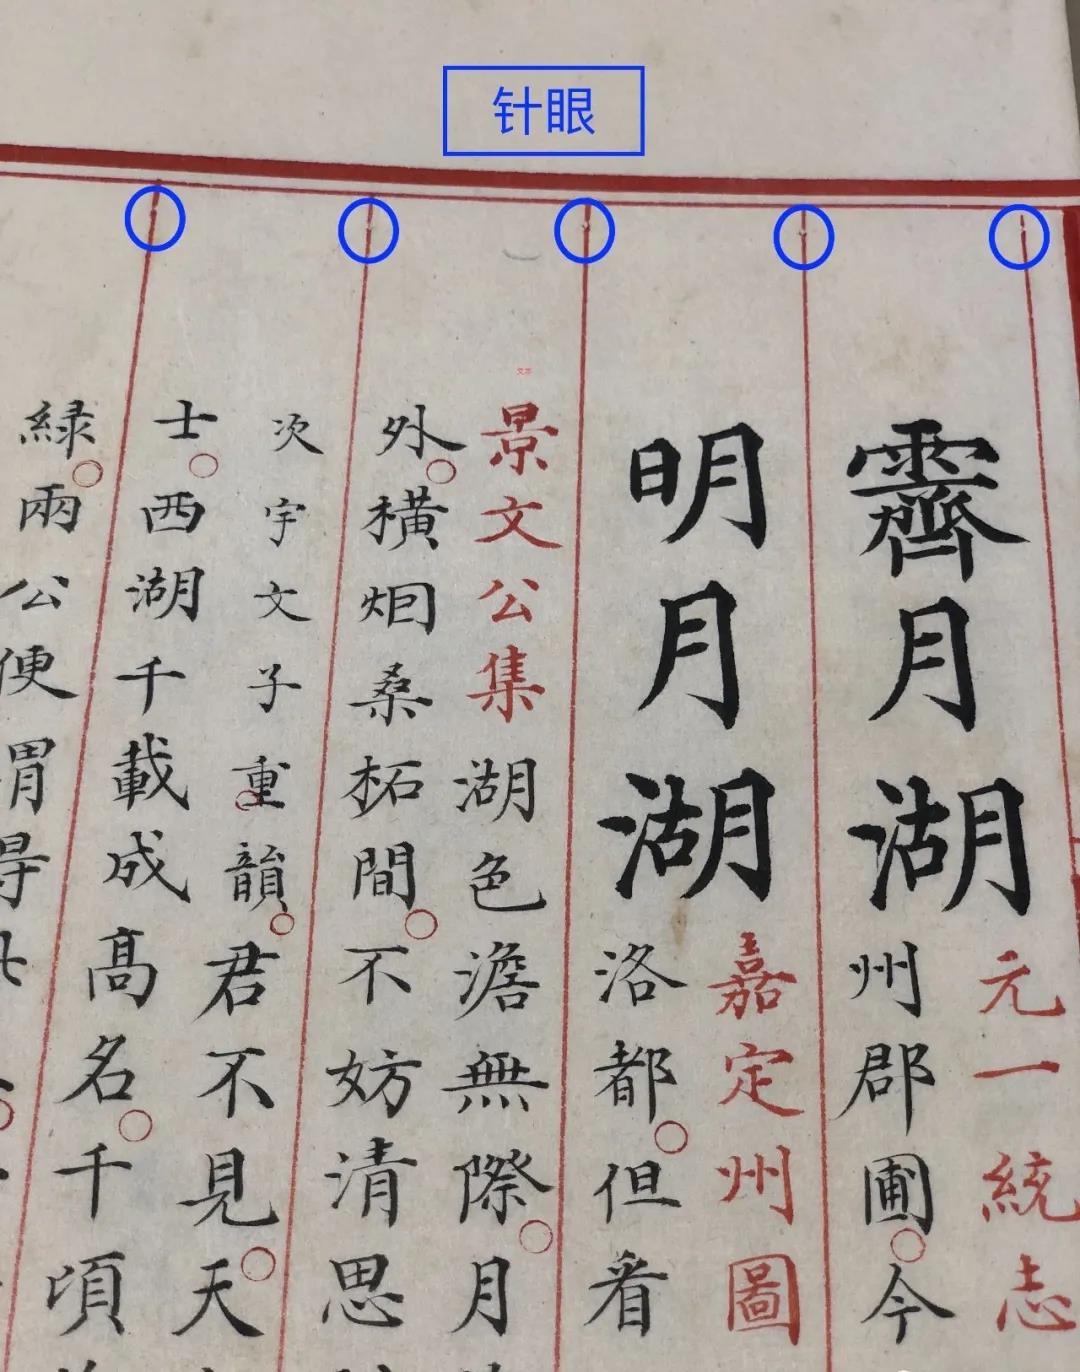 针眼
文本
霽月湖
元一統志
州郡圃。今
明月湖
嘉定州圖
洛都。但看
景文公集湖色澹無際。月
外。橫烟桑柘間。不妨清思
次宇文子重韻。君不見。天
士。西湖千載成髙名。千頃
綠。兩公便謂得